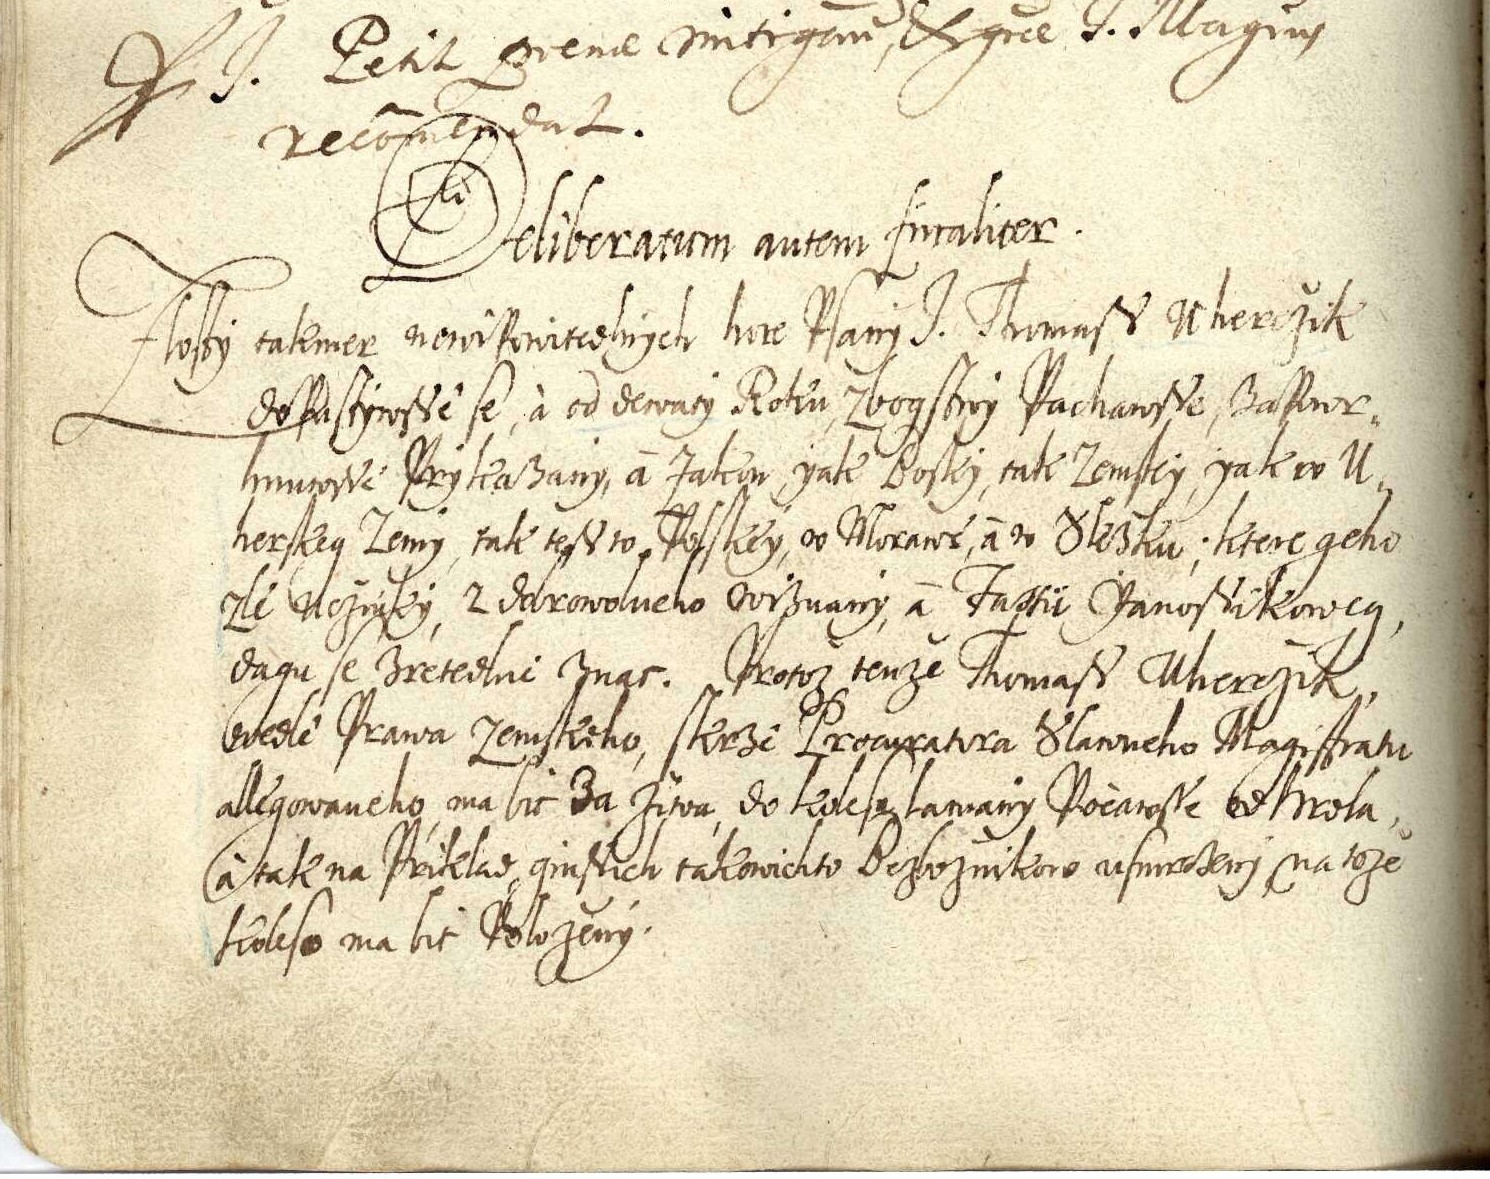 J. Petit poenae mitigam, & gre J. Magius
recõmendat.
Deliberatum autem finaliter.
Zlosti takmer newipowitedlnych hore Psany J. Thomass Uherczik
dopustiwsse se, à od dewaty Roku, Zbogstwy Pachawsse, Zapowr-
hnuwsse Prykazany, à Zakon yak Bosky, tak Zemsky, yak w U-
herskeg Zemy, tak tess w Polskey, w Morawe, à w Slezku; ktere geho
zlé Uczinky, z dobrowolneho wiznany, à Fassii Yanossikoweg,
dagu se zretedlne znat. Protoz tenze Thomass Uherczik,
wedlé Prawa Zemskeho, skrze Procuratora Slawneho Magistratu
allegowaneho, ma bit za ziwa, do kolesa lamany Pocawsse od hrola,
à tak na Priklad ginssich takowichto Bezboznikow usmrceny, na toze
koleso ma bit Polozeny.